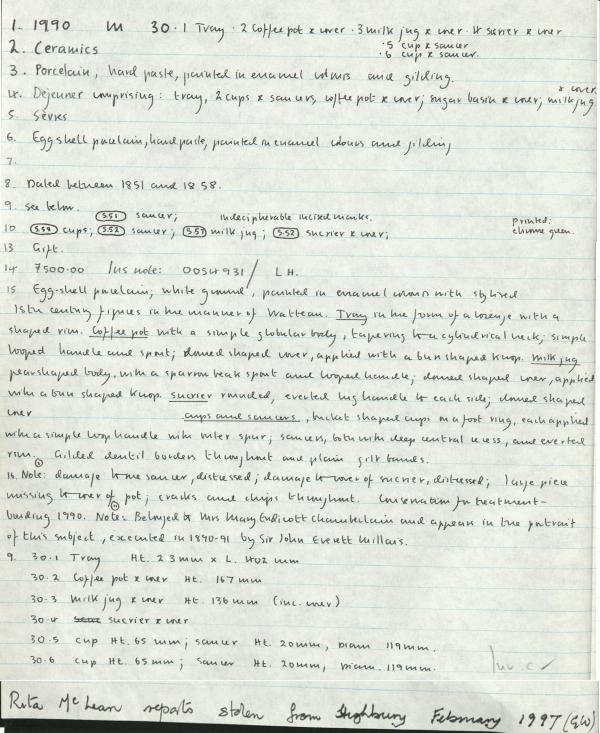 1. 1990 M 30.1 Tray . 2 Coffee pot & cover . 3 milk jug & cover . 4 sucrier & cover
.5 cup & saucer
.6 cup & saucer.
2. Ceramics
3. Porcelain, hard paste, painted in enamel colours and gilding.
4. Dejeuner comprising: tray, 2 cups & saucers, coffee pot & cover; sugar basin & cover; milk jug & cover.
5. Sèvres
6. Eggshell porcelain, hard paste, painted in enamel colours and gilding
7.
8. Dated between 1851 and 1858.
9. see below.
S.51 saucer; indecipherable incised marks. Printed: chrome green.
10 S.58 cups; S.52 saucer; S.57 milk jug; S.52 sucrier & cover;
13 Gift.
14 7500.00 Ins note: 0054931/ L.H.
15 Egg-shell porcelain; white ground, painted in enamel colours with stylised
18th century figures in the manner of Watteau. Tray in the form of a lozenge with a
shaped rim. Coffee pot with a simple globular body, tapering to a cylindrical neck; simple
looped handle and spout; domed shaped cover, applied with a bun shaped knop. Milk jug
pearshaped body, with a sparrow beak spout and looped handle; domed shaped cover, applied
with a bun shaped knop. Sucrier rounded, everted lug handle to each side; domed shaped
cover cups and saucers, bucket shaped cups on a foot ring, each applied
with a simple loop handle with outer spur; saucers, both with deep central recess, and everted
rim. Gilded dentil borders throughout and plain gilt bands.
16. Note: damage to one saucer, distressed; damage to cover of sucrier, distressed; large piece
missing to cover of pot; cracks and chips throughout. Conservation for treatment-
binding 1990. Note: Belonged to Mrs Mary Endicott Chamberlain and appears in the portrait
of this subject, executed in 1890-91 by Sir John Everett Millais.
9. 30.1 Tray Ht. 23mm x L. 402 mm
30.2 Coffee pot & cover Ht. 167 mm
30.3 Milk jug & cover Ht. 136 mm (inc. cover)
30.4 sucrier & cover
30.5 cup Ht. 65 mm; saucer Ht. 20mm, Diam 119mm.
30.6 cup Ht. 65mm; saucer Ht. 20mm, Diam. 119mm.
Rita McLean reports stolen from Highbury February 1997 (GW)